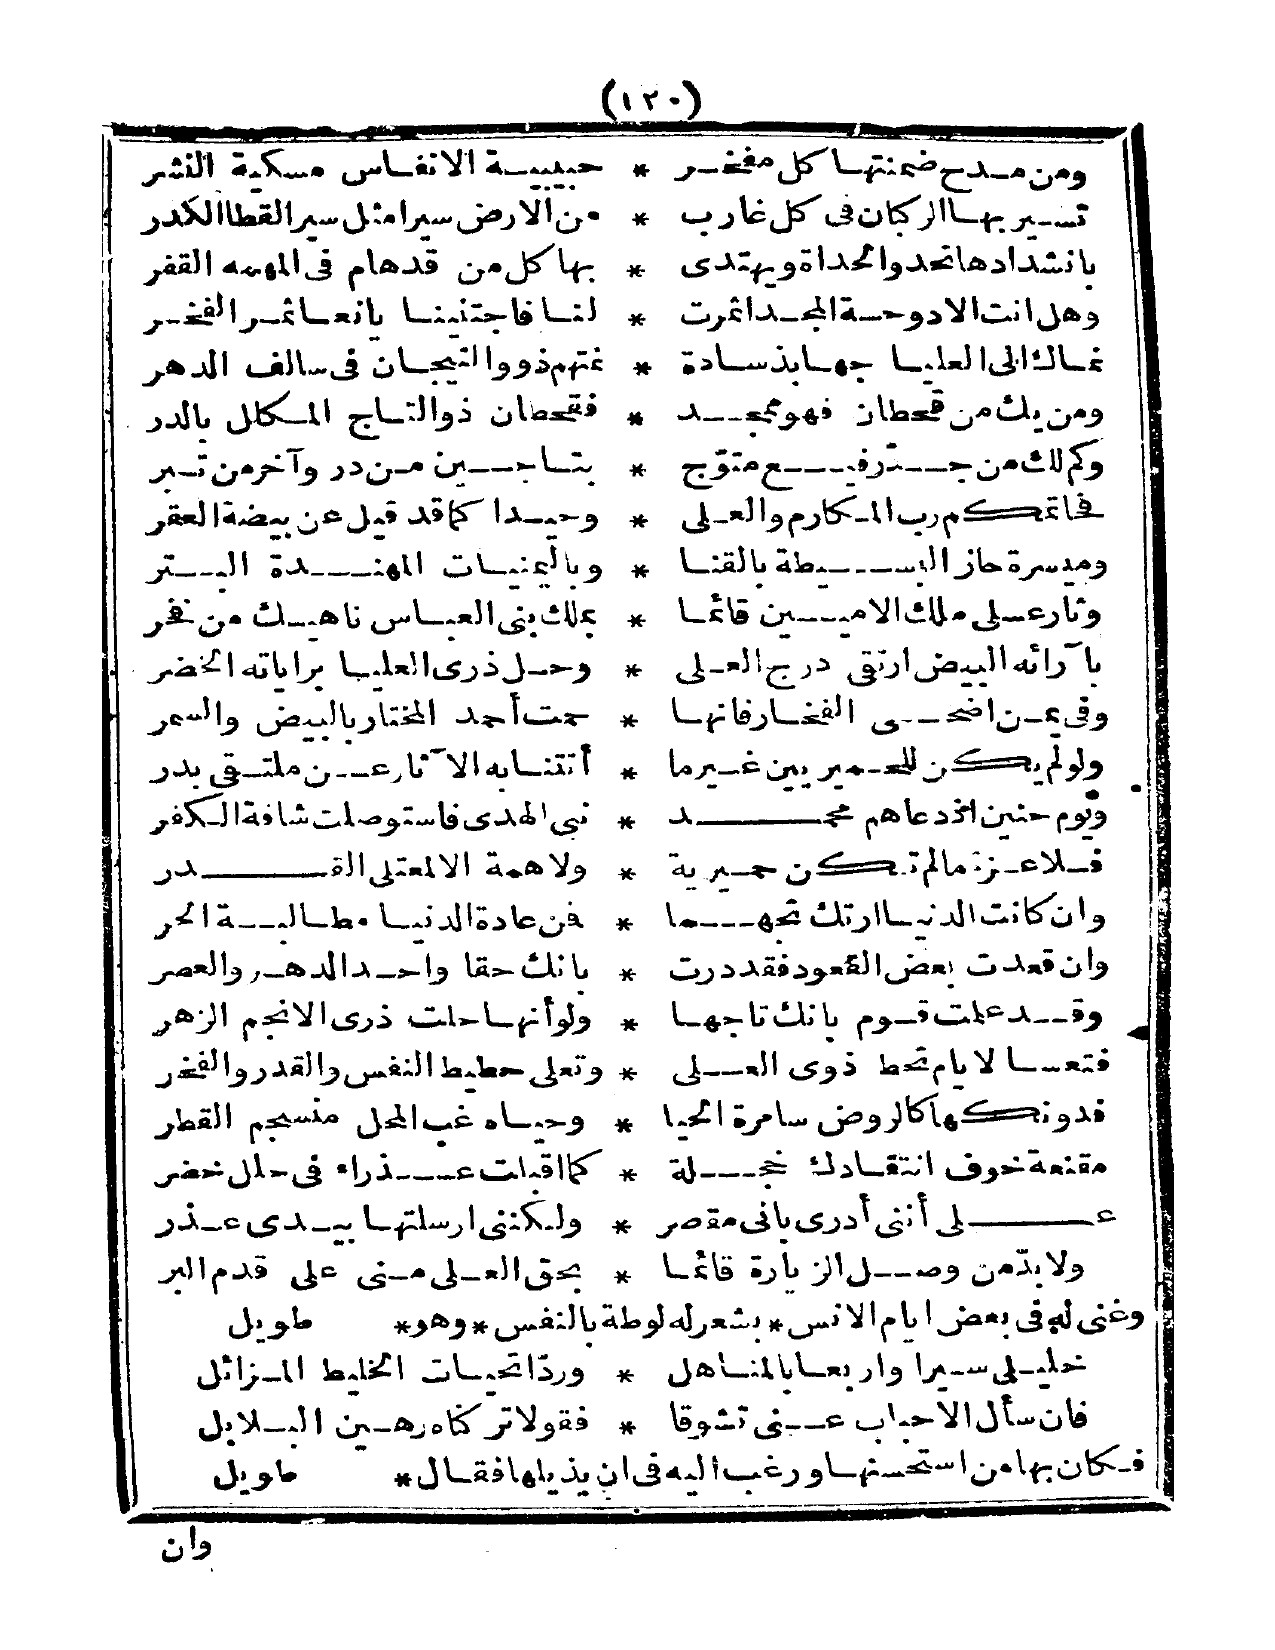 (١٢٠)
ومن مدح ضمنتها كل مفخر * حبيبية الانفاس مسكية النشر
تسير بها الركان فى كل غارب * من الارض سيرا مثل سير القطا الكدر
بانشدادها تحدو الحداة ويهتدى * بها كل من قدهام فى المهمه القفر
وهل انت الادوحة المجد اثمرت * لنا فاجتنينا يانعا ثمر الفخر
نماك الى العليا جهابذ سادة * نمتهم ذوو التيجان فى سالف الدهر
ومن يك من قحطان فهو ممجد * فقحطان ذو التاج المكلل بالدر
وكم لك من جد رفيع متوّج * بتاجين من در وآخر من تبر
فاتمكم رب المكارم والعلى * وحيدا كما قد قيل عن بيضة العقر
وميسرة حاز البسيطة بالقنا * وباليمنيات المهندة البتر
وثار على ملك الامين قائما * بملك بنى العباس ناهيك من فخر
بآرائه البيض ارتقى درج العلى * وحل ذرى العليا براياته الخضر
وفى يمن اضحى الفخار فانها * حمت أحمد المختار بالبيض والسمر
ولو لم يكن للحميريين غير ما * أتتنا به الآثار عن ملتقى بدر
ويوم حنين اذ دعاهم محمد * نبى الهدى فاستوصلت شافة الكفر
فلا عزة مالم تكن حميرية * ولا همة الا لمعتلى القدر
وان كانت الدنيا ارتك تجهما * فمن عادة الدنيا مطالبة الحر
وان قعدت بعض القعود فقد درت * بانك حقا واحد الدهر والعصر
وقد علمت قوم بانك تاجها * ولو أنها حلت ذرى الانجم الزهر
فتعسا لايام تحط ذوى العلى * وتعلى حطيط النفس والقدر والفخر
فدونكها كالروض سامرة الحيا * وحياه غب المحل منسجم القطر
مقنعة خوف انتقادك خجلة * كما اقبلت عذراء فى حلل خضر
على أننى أدرى بانى مقصر * ولكننى ارسلتها بيدى عذر
ولا بدّ من وصل الزيارة قائما * بحق العلى منى على قدم البر
وغنى له فى بعض ايام الانس * بشعر له لوطة بالنفس * وهو * طويل
خليلى سيرا واربعا بالمناهل * وردّا تحيات الخليط المزائل
فان سأل الاحباب عنى تشوقا * فقولا تركاه رهين البلابل
فكان بها من استحسنها ورغب اليه فى ان يذيلها فقال * طويل
وان